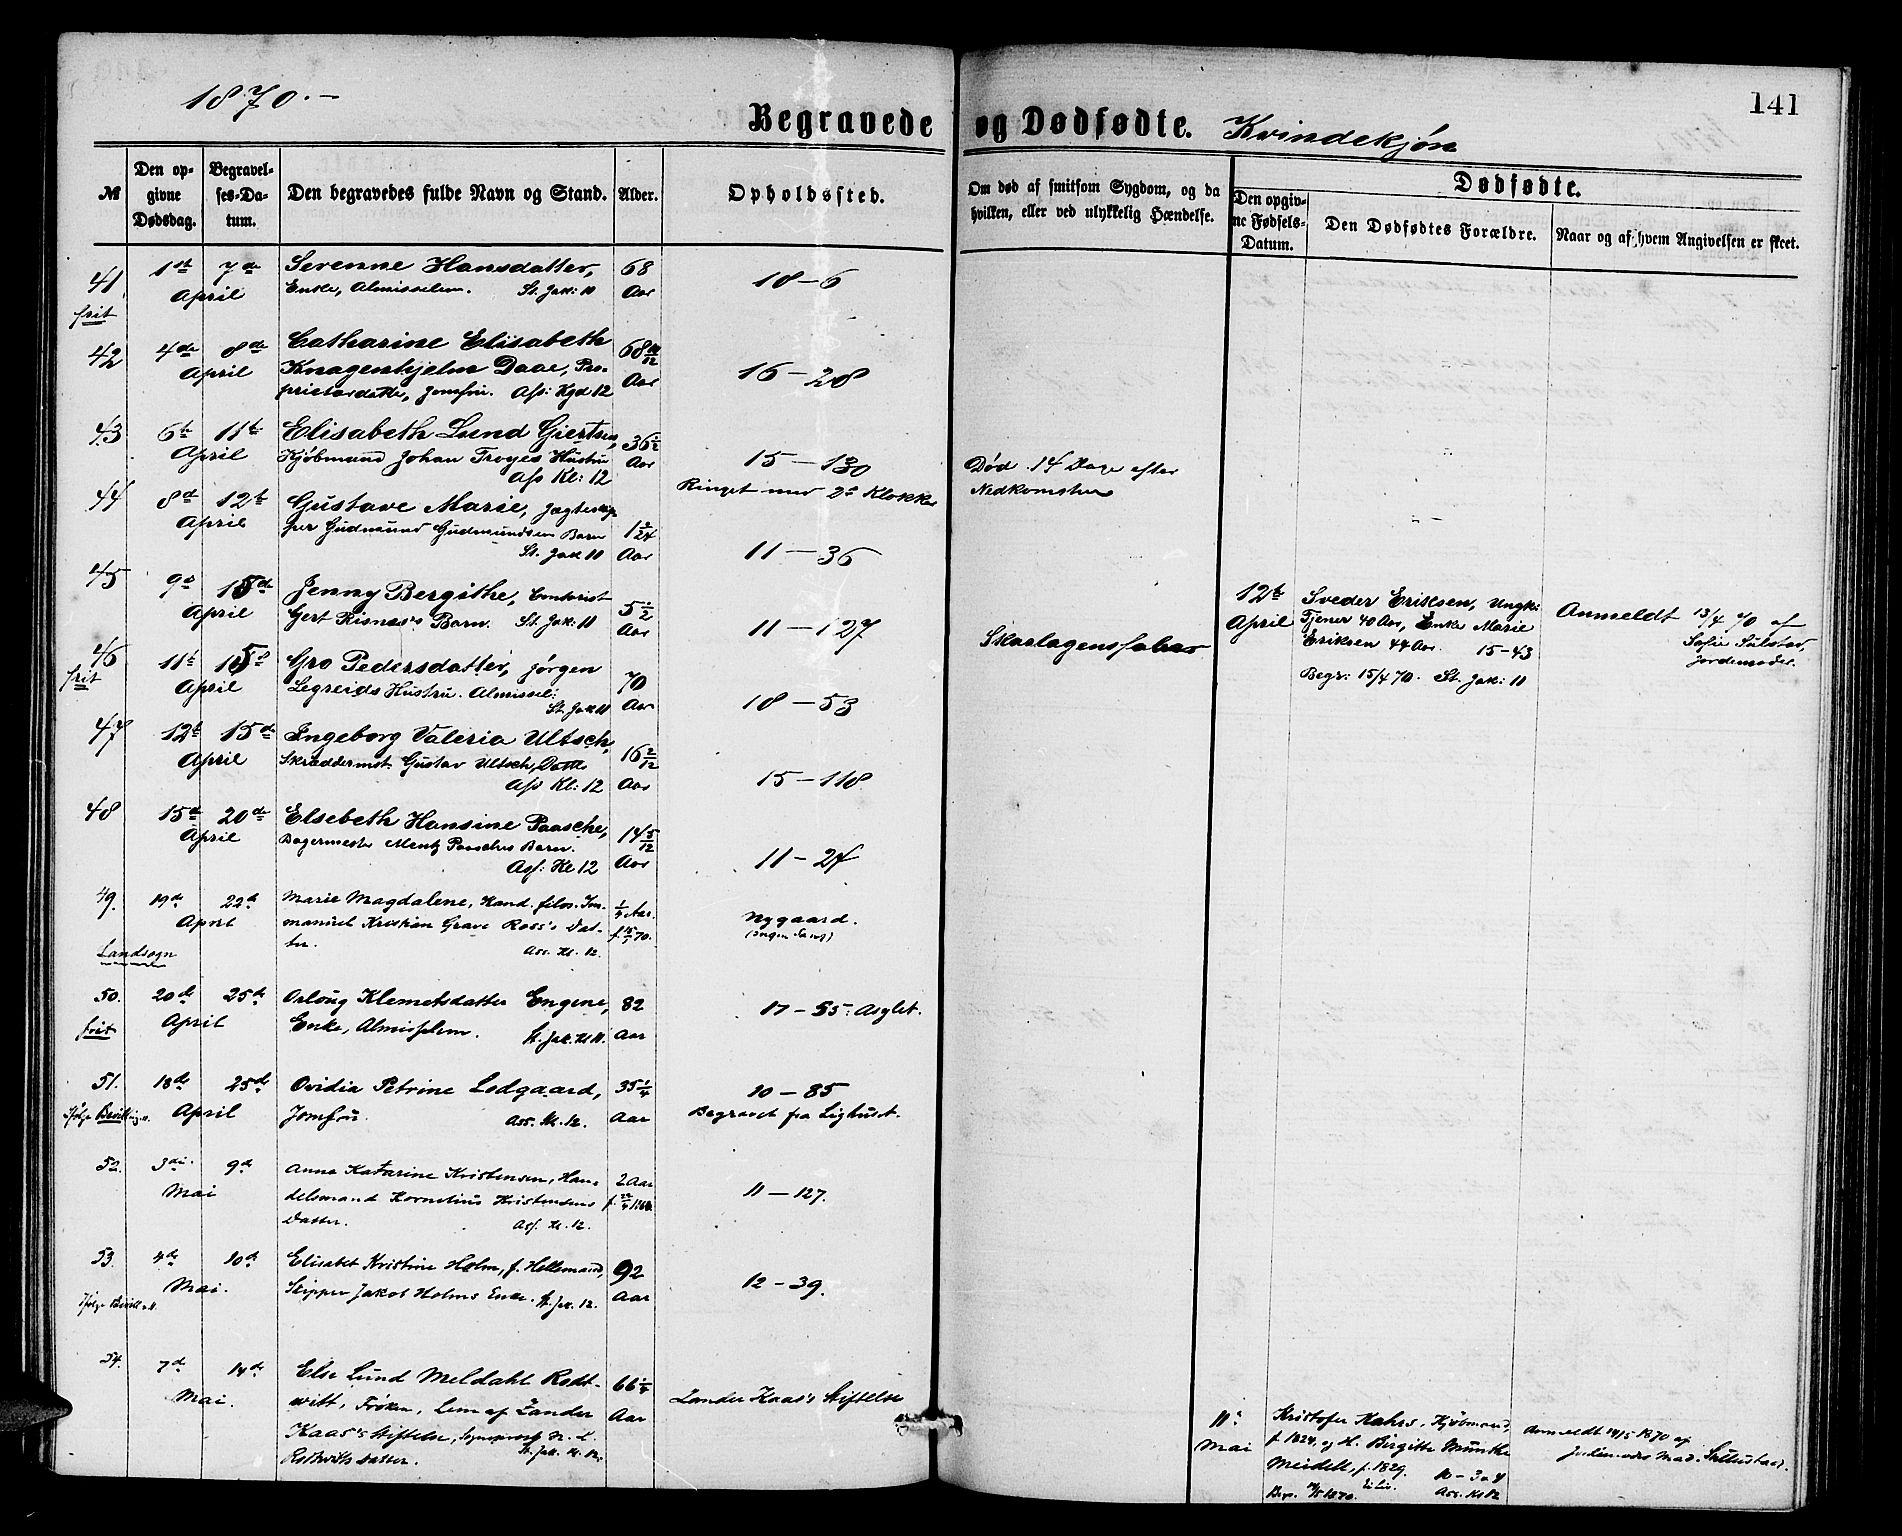 1870.—
141
Begravede og Dødfødte. Kvindekjøn
№
Den opgivne Dødsdag.
Begravelses-Datum.
Den begravedes fulde Navn og Stand.
Alder.
Opholdssted.
Om død af smitsom Sygdom, og da hvilken, eller ved ulykkelig Hændelse.
Dødfødte.
Den opgivne Fødsels-Datum.
Den Dødfødtes Forældre.
Naar og af hvem Angivelsen er skeet.
41 1st 7de Serenne Hansdatter, 68 18–6
frit April Enke, Almisselem. St. Jak: 11 Aar
42 4de 8de Catharine Elisabeth 68 Aar 16–28
April Knagenhjelm Daae, Pro-
prietærdatter, Jomfru. Ass: Kgd 12
43 6te 11te Elisabeth Lund Giertsen, 36½ 15–130
April Kjøbmand Johan Troyes Hustru Aar
Ass Kl: 12 Ringet med 2de Klokker
Død 14 Dage efter
Nedkomsten
44 8d 12te Gustave Marie, Jægteskip-
April per Gudmund Gudmundsen Barn 1 2/24
St. Jak 11 Aar 11–36
45 9d 15de Jenny Bergithe, Contorist
April Gert Risnæs's Barn. St. Jak: 11 5½ Aar 11–127
Skarlagensfeber
12te Sveder Eriksen, Ungk: Anmeldt 13/4 70 af
April Tjener 40 Aar, Enke Marie Sofie
Eriksen 44 Aar. 15–43 Jordemoder.
Begr: 15/4 70. St. Jak: 11
46 11te 15d Gro Pedersdatter, Jørgen
frit April Legreids Hustru. Almissel: 70
St. Jak 11 Aar 18–53
47 12te 15de Ingeborg Valeria Ultsch, 16 2/12
April Skræddermst. Gustav Ultsch, Datter
Ass Kl: 12 Aar 15–118
48 15de 20de Elsebeth Hansine Paasche, 14 5/12
April Bagermester Mentz Paasches Barn.
Ass: Kl 12 Aar 11–24
49. 19de 22de Marie Magdalene, Kand. filos. Im- ¼ Aar.
April manuel Kristian Grave Ross's Dat- Nygaard.
ter. Ass. Kl. 12. (ingen Sang)
Landsogn
50. 20de 25de Oslaug Klemetsdatter Engene, 82 17–55. Asylet.
frit April Enke, Almisselem. St. Jak. Kl 11. Aar
51. 18de 25de Ovidia Petrine Lodgaard, 35¼ 10–85
Ifølge Bevilling April Jomfru. Ass. Kl. 12. Aar Begravet fra Lighuset.
52. 3die 9de Anna Katarine Kristensen, Han- 2 Aar
Mai delsmand Kornelius Kristensens 11–127.
Datter. Ass. Kl. 12.
53. 4de 10de Elisabet Kristine Holm, f. Hellemand, 92
Mai. Skipper Jakob Holms Enke. St. Jak. 12. Aar 12–39.
54. 7de 14de Else Lund Meldahl Rodt- 66¼
Mai. witt, Frøken, Lem af Zander Aar Zander Kaas's Stiftelse
Kaas's Stiftelse,
Rodtvitts Datter. St. Jak. Kl. 12.
11. Kristofer Kahrs, Kjøbmand, Anmeldt 14/5 1870 af
Mai f. 1824, og H. Birgitte Munthe Jordemoder Mad.
Meidell, f. 1829. 10–3
Begr. 1870. Ass. Kl 12